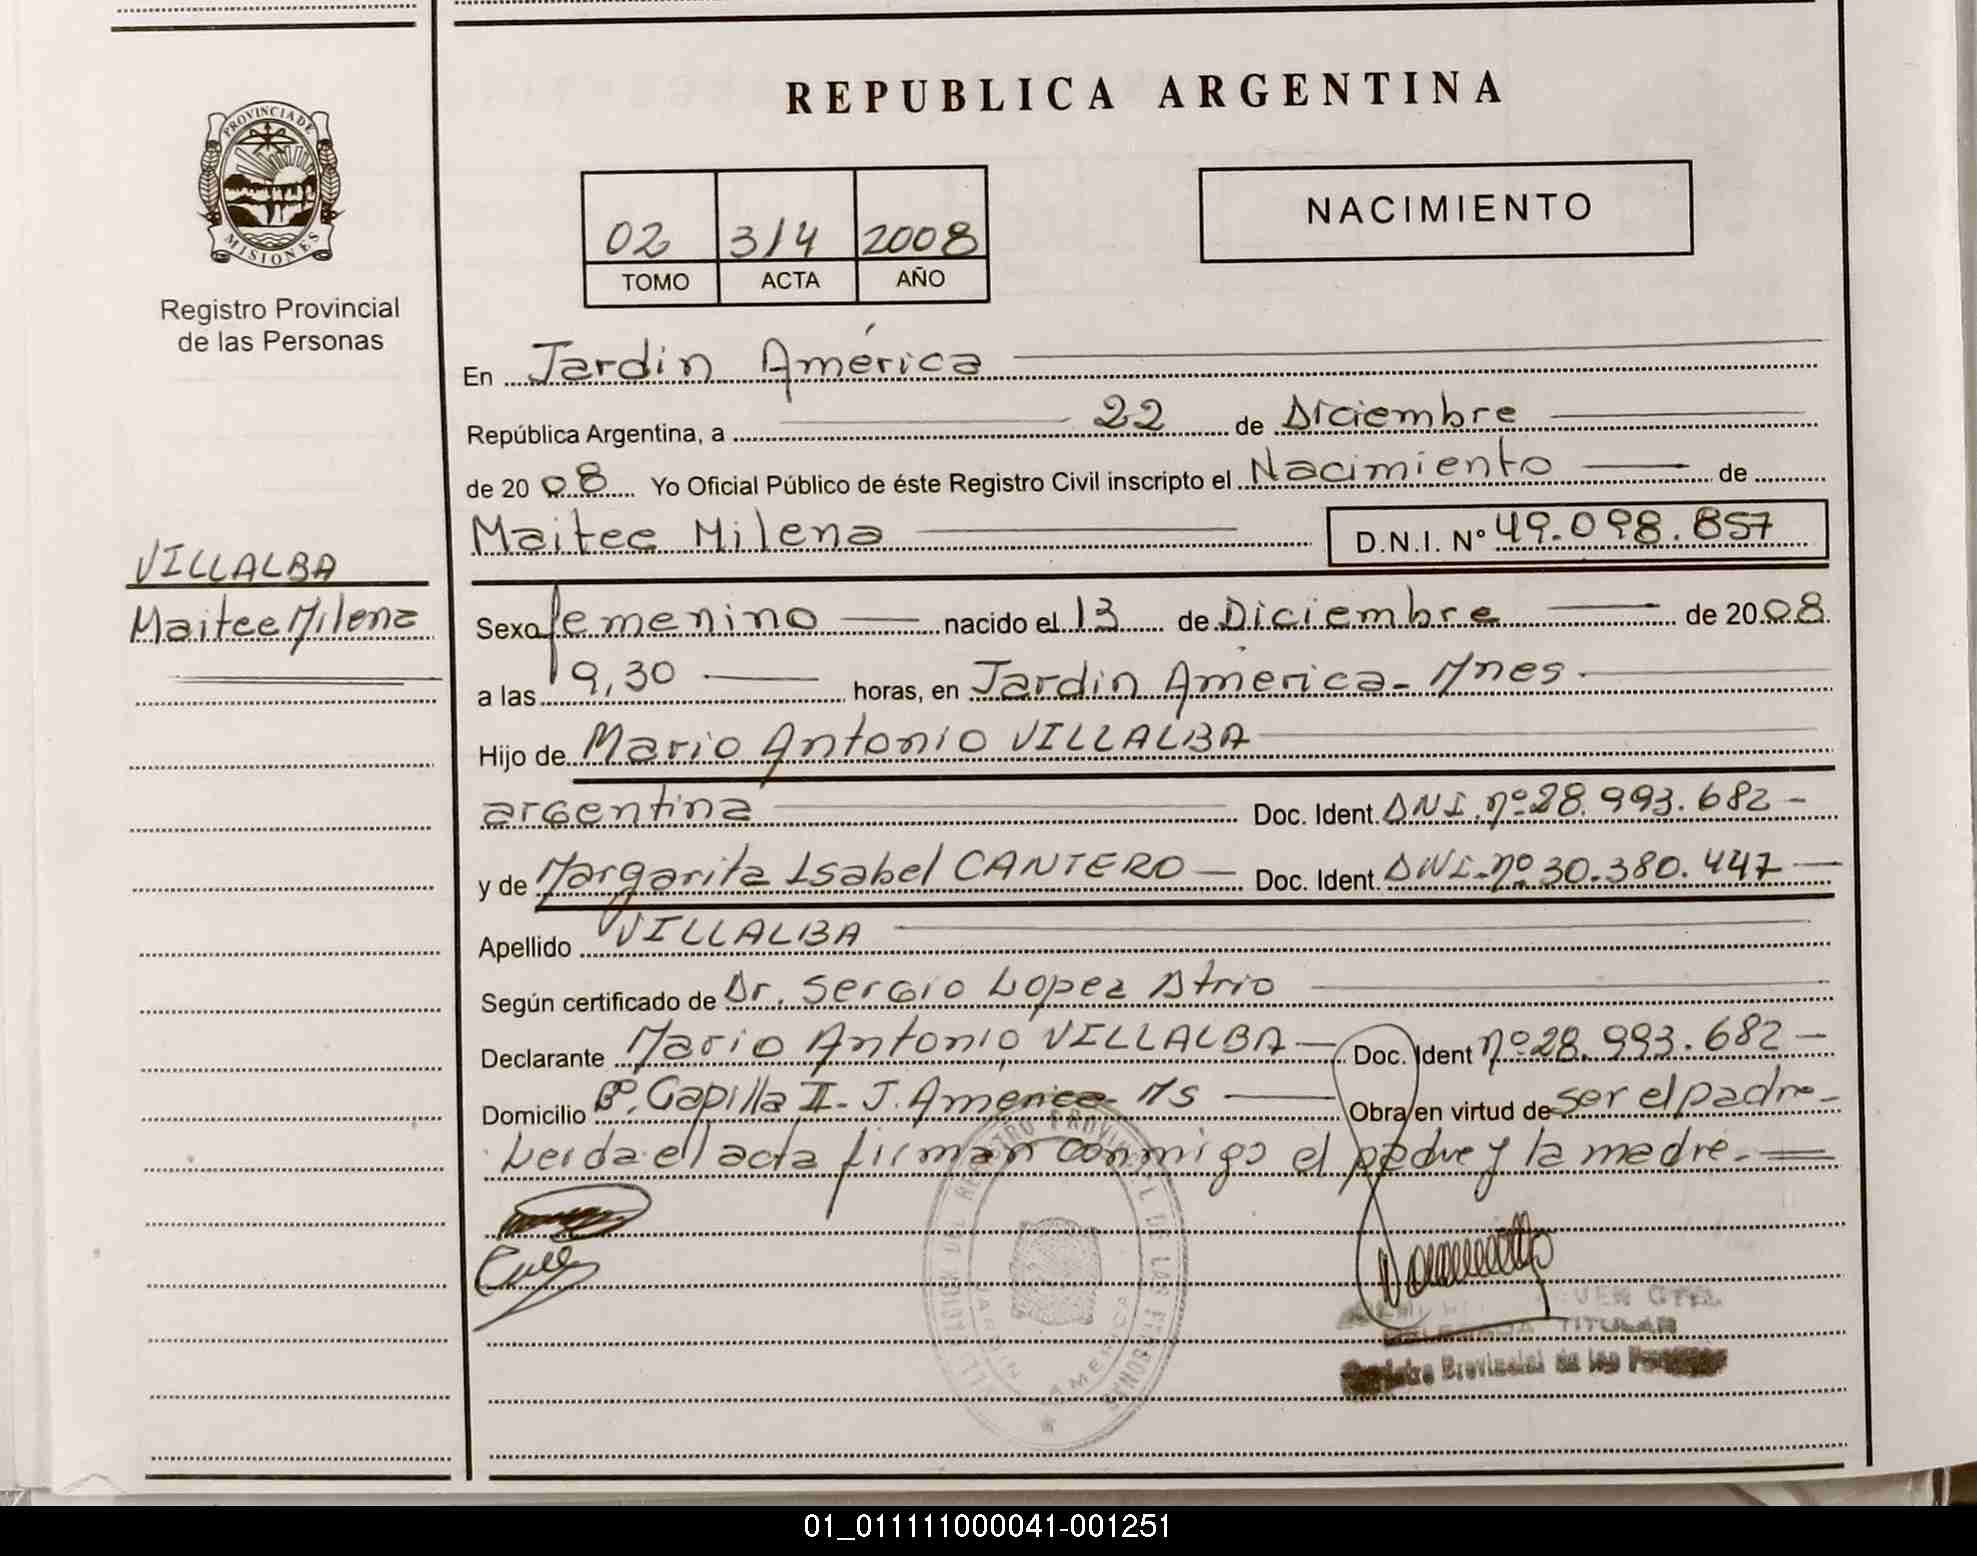 REPUBLICA ARGENTINA
PROVINCIA DE
MISIONES
Registro Provincial
de las Personas
02 314 2008
TOMO ACTA AÑO
NACIMIENTO
En Jardin América
República Argentina, a 22 de Diciembre
de 2008 Yo Oficial Público de éste Registro Civil inscripto el Nacimiento de
Maitee Milena D.N.I. Nº 49.098.857
VILLALBA
Maitee Milena
Sexo femenino nacido el 13 de Diciembre de 2008
a las 9,30 horas, en Jardin América - Mnes
Hijo de Mario Antonio VILLALBA
argentina Doc. Ident. DNI. nº 28.993.682 -
y de Margarita Isabel CANTERO Doc. Ident. DNI. nº 30.380.447
Apellido VILLALBA
Según certificado de Dr. Sergio Lopez Atrio
Declarante Mario Antonio VILLALBA Doc. Ident nº 28.993.682 -
Domicilio Bº. Capilla II - J. America - Ms Obra en virtud de ser el padre -
Leida el acta firman conmigo el padre y la madre. -
REGISTRO PROVINCIAL DE LAS PERSONAS
JARDIN AMERICA
TITULAR
Registro Provincial de las Personas
01_011111000041-001251